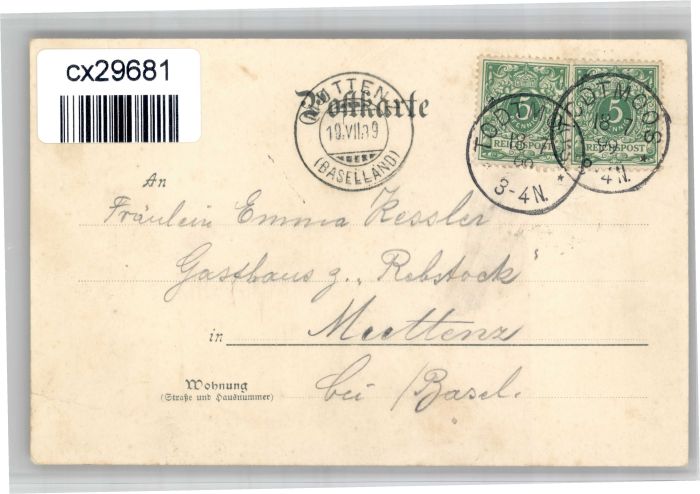 cx29681
Postkarte
MUTTENZ
19.VII.99
(BASELLAND)
5
PFENNIG
REICHSPOST
5
PFENNIG
REICHSPOST
TODTMOOS
18 7
99
3-4N.
TODTMOOS
18 7
99
3-4N.
An
Fräulein Emma Kessler
Gasthaus z. „Rebstock“
in Muttenz
bei / Basel.
Wohnung
(Straße und Hausnummer)